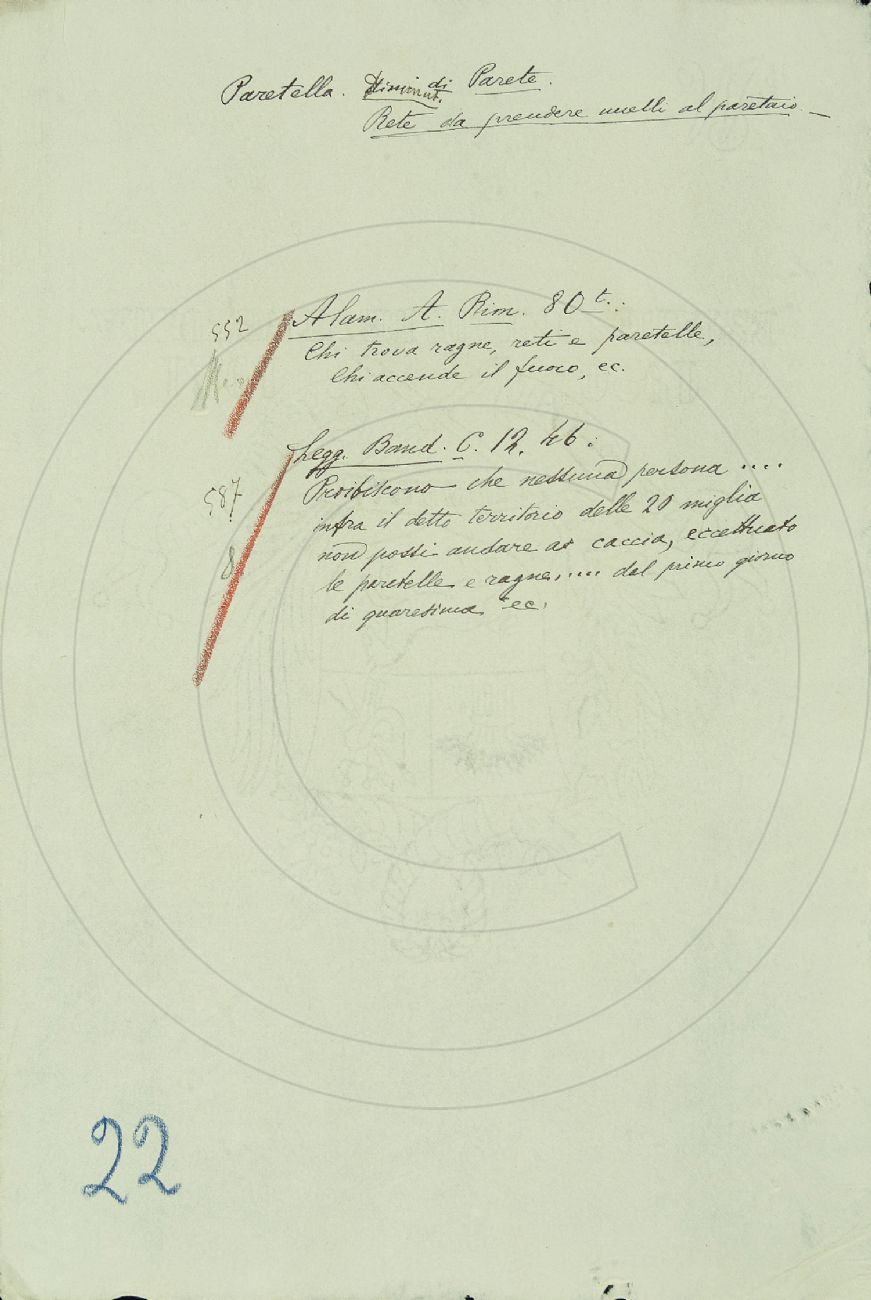 Paretella. Diminut. di Parete.
Rete da prendere uccelli al paretaio. —
552
Alam. A. Rim. 80 t.:
Chi trova ragne, reti e paretelle,
Chi accende il fuoco, ec.
Legg. Band. C. 12. 46:
587
Proibiscono che nessuna persona ....
infra il detto territorio delle 20 miglia
non possi andare a caccia, eccettuato
8
le paretelle e ragne, .... dal primo giorno
di quaresima ec.
22